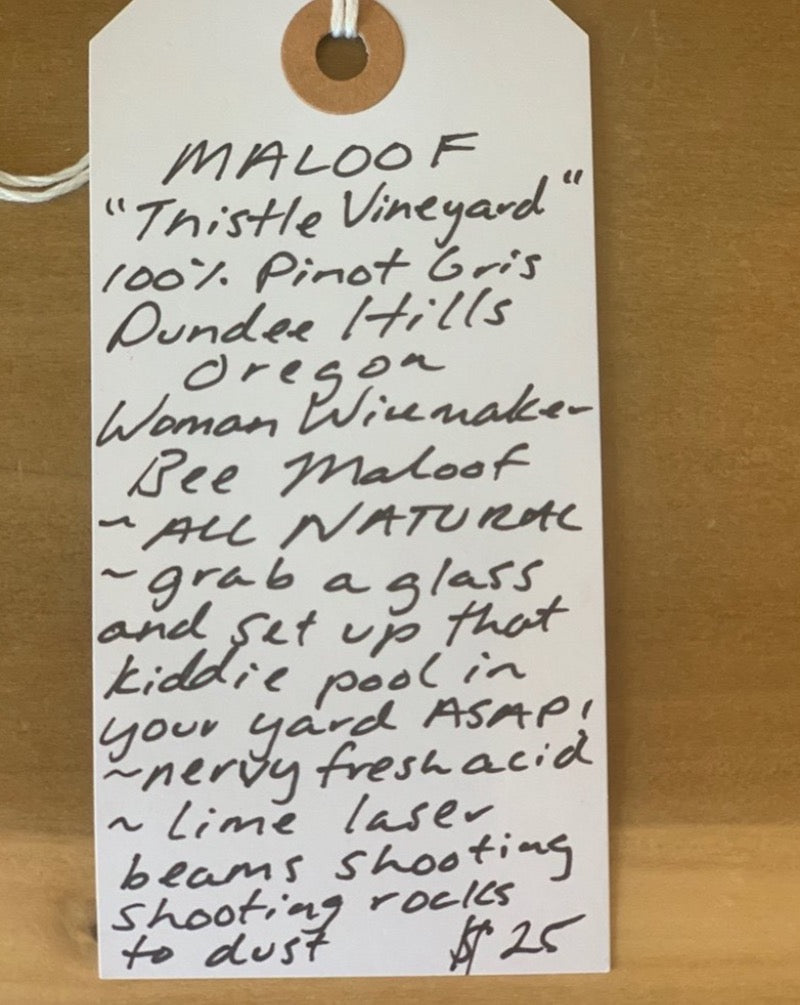 MALOOF
"Thistle Vineyard"
100% Pinot Gris
Dundee Hills
Oregon
Woman Winemaker
Bee Maloof
~ ALL NATURAL
~ grab a glass
and set up that
kiddie pool in
your yard ASAP!
~nervy fresh acid
~ lime laser
beams shooting
shooting rocks
to dust $25